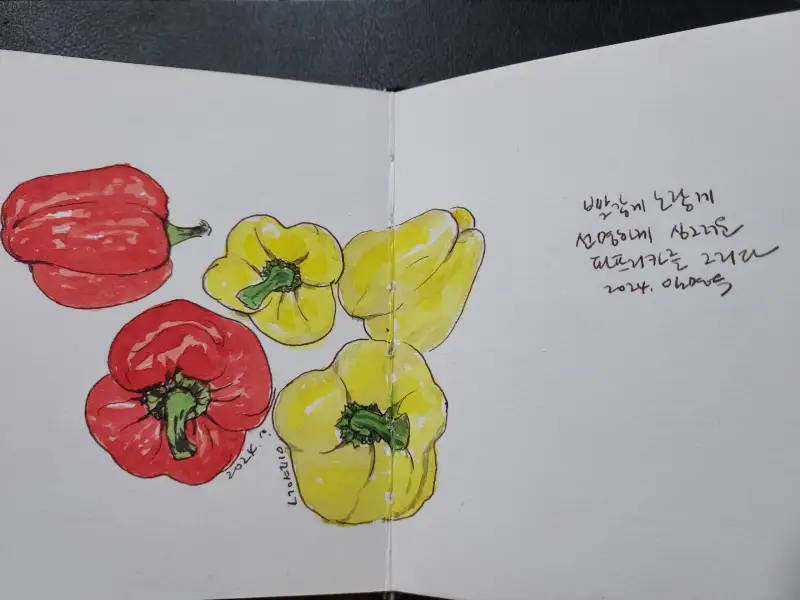 빨갛게 노랗게
선명하게 싱그러운
파프리카를 그리다
2024.
2024. 10.